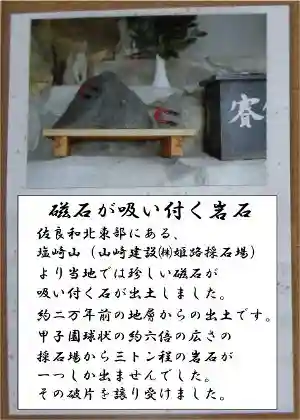 賽
磁石が吸い付く岩石
佐良和北東部にある、
塩崎山（山崎建設㈱姫路採石場）
より当地では珍しい磁石が
吸い付く石が出土しました。
約二万年前の地層からの出土です。
甲子園球状の約六倍の広さの
採石場から三トン程の岩石が
一つしか出ませんでした。
その破片を譲り受けました。